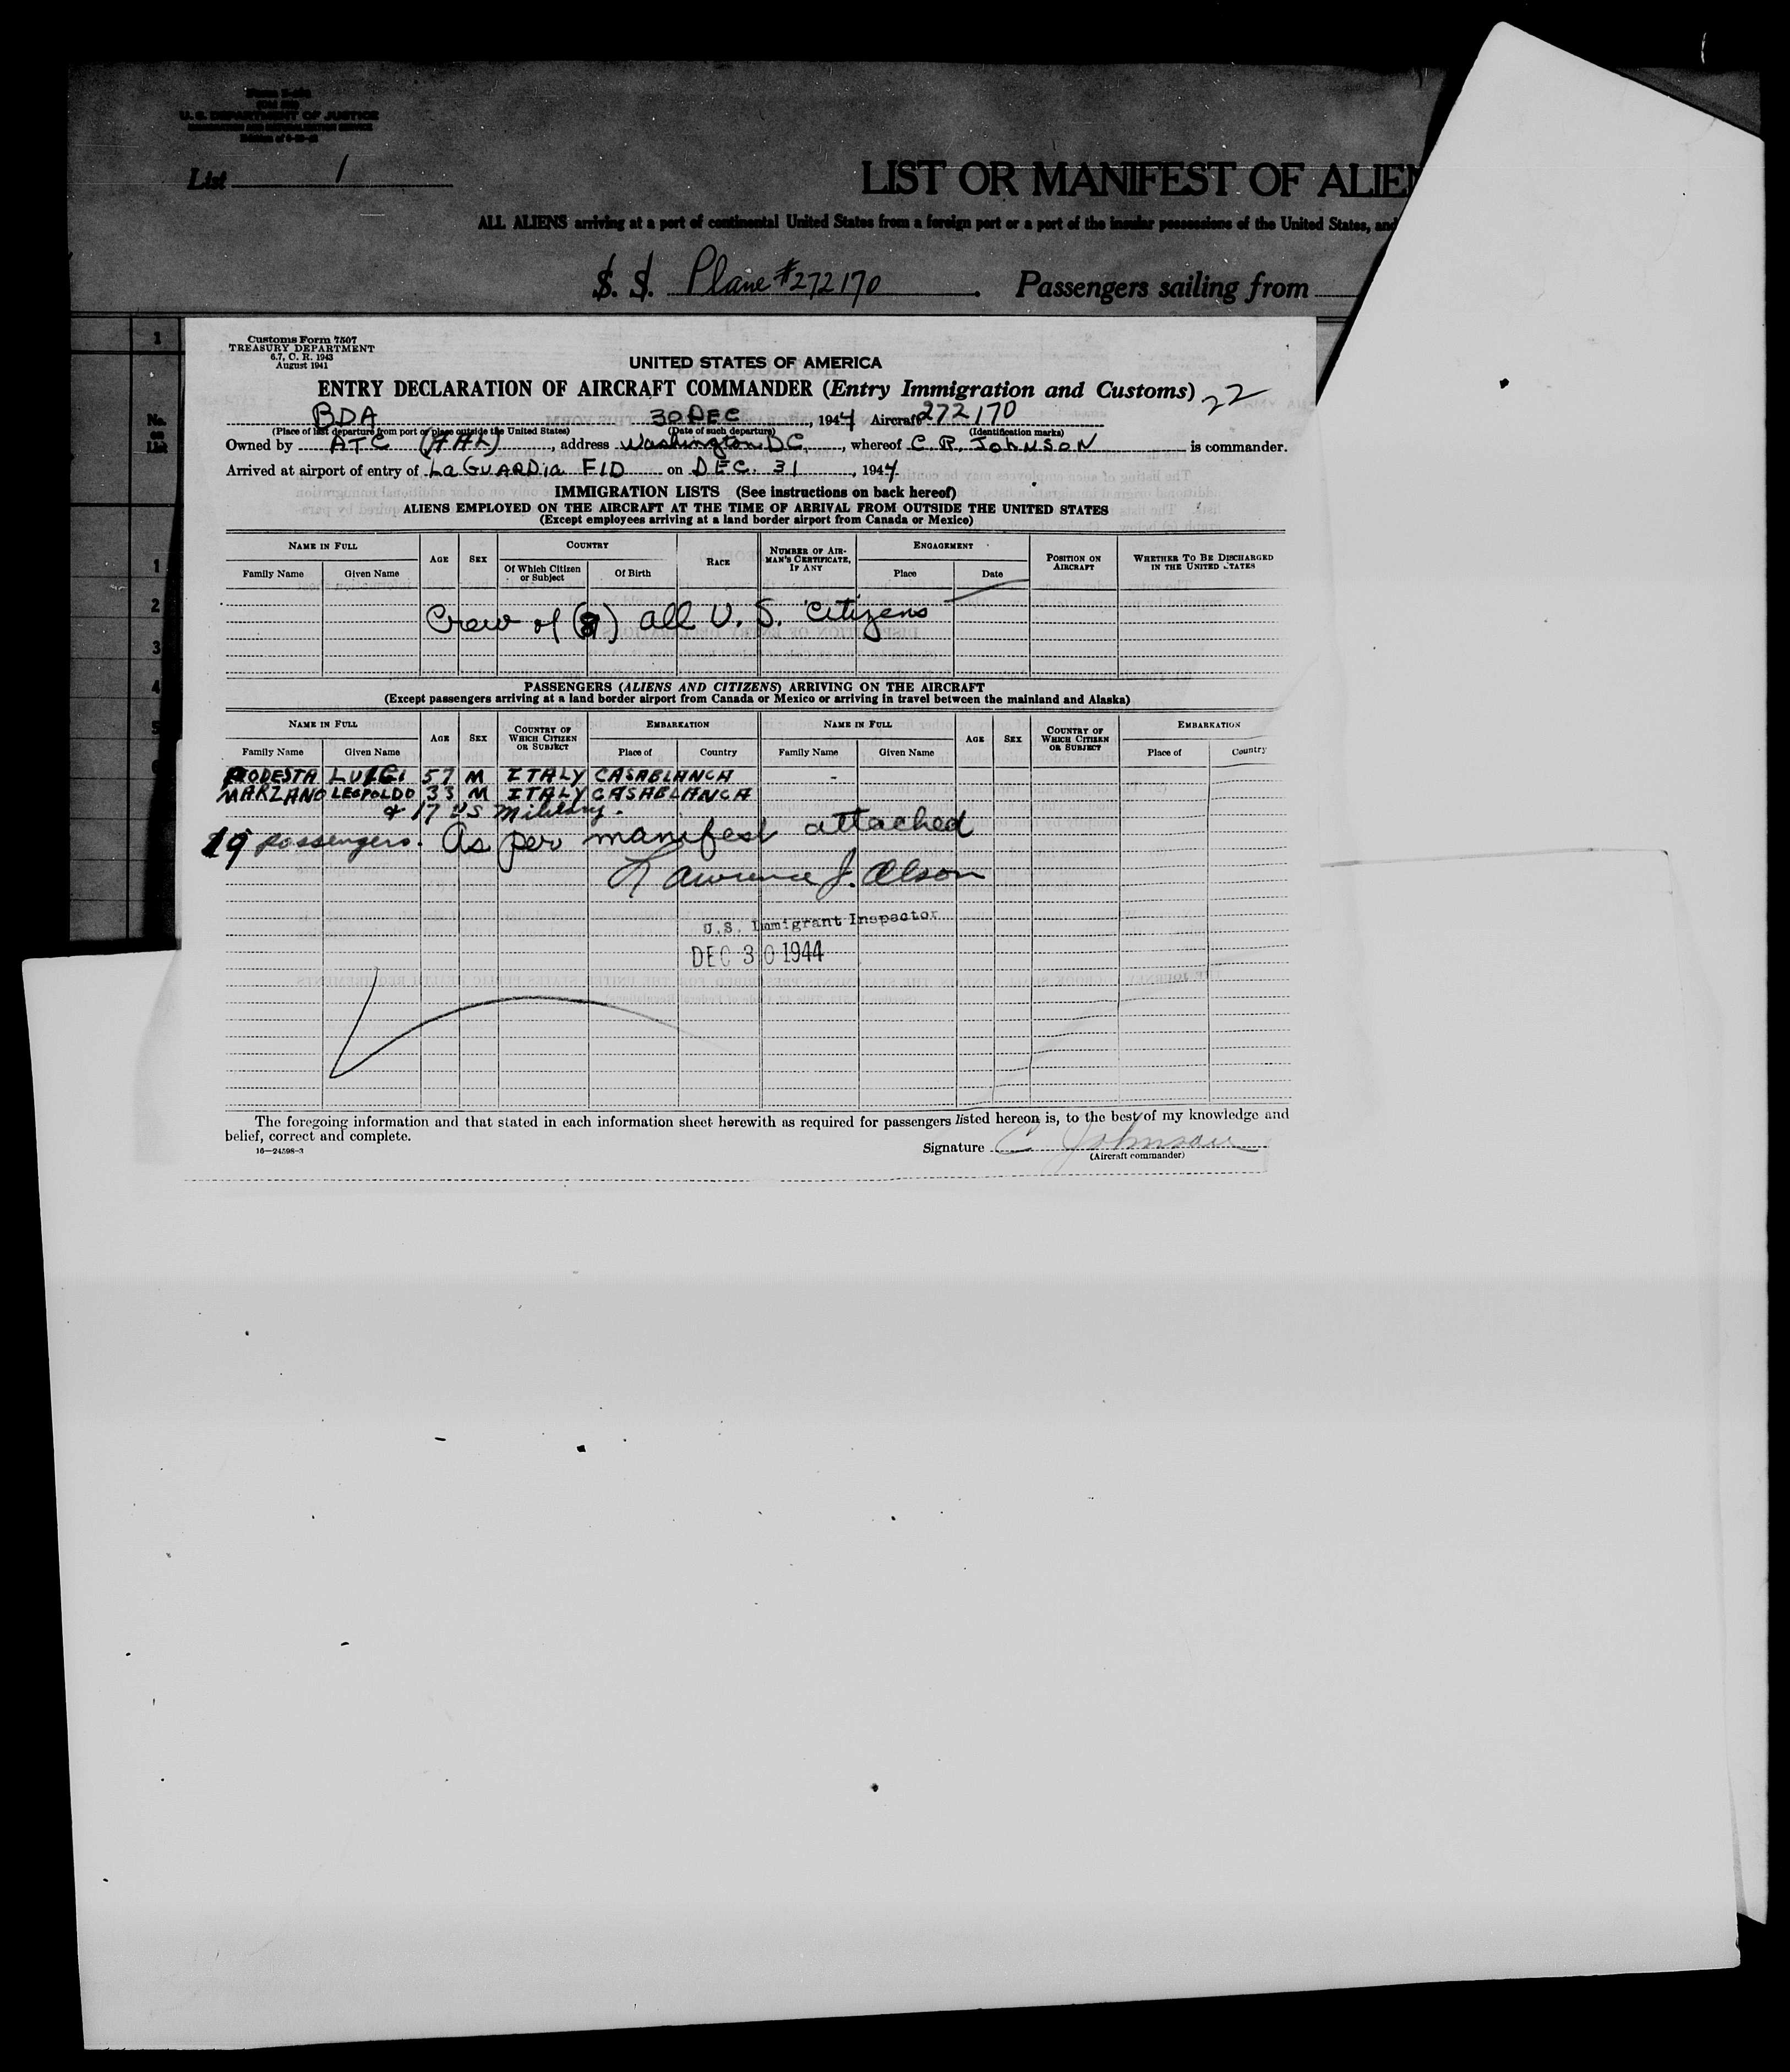 U. S. DEPARTMENT OF JUSTICE
List 1
LIST OR MANIFEST OF ALIEN
ALL ALIENS arriving at a port of continental United States from a foreign port or a port of the insular possessions of the United States, and
S. S. Plane #272170 . Passengers sailing from
1
No. on List
1
2
3
4
5
6
Customs Form 7507
TREASURY DEPARTMENT
6.7, C. R. 1943
August 1941
UNITED STATES OF AMERICA
ENTRY DECLARATION OF AIRCRAFT COMMANDER (Entry Immigration and Customs) 22
BDA 30 DEC , 1944 Aircraft 272170
(Place of last departure from port or place outside the United States) (Date of such departure) (Identification marks)
Owned by ATC (AAL) , address Washington DC , whereof C. R. JOHNSON is commander.
Arrived at airport of entry of LaGUARDia FlD on DEC. 31 , 1944
IMMIGRATION LISTS (See instructions on back hereof)
ALIENS EMPLOYED ON THE AIRCRAFT AT THE TIME OF ARRIVAL FROM OUTSIDE THE UNITED STATES
(Except employees arriving at a land border airport from Canada or Mexico)
NAME IN FULL AGE SEX COUNTRY RACE NUMBER OF AIRMAN'S CERTIFICATE, IF ANY ENGAGEMENT POSITION ON AIRCRAFT WHETHER TO BE DISCHARGED IN THE UNITED STATES
Family Name Given Name Of Which Citizen or Subject Of Birth Place Date
Crew of ( ) all U. S. Citizens
PASSENGERS (ALIENS AND CITIZENS) ARRIVING ON THE AIRCRAFT
(Except passengers arriving at a land border airport from Canada or Mexico or arriving in travel between the mainland and Alaska)
NAME IN FULL AGE SEX COUNTRY OF WHICH CITIZEN OR SUBJECT EMBARKATION NAME IN FULL AGE SEX COUNTRY OF WHICH CITIZEN OR SUBJECT EMBARKATION
Family Name Given Name Place of Country Family Name Given Name Place of Country
PODESTA LUIGI 57 M ITALY CASABLANCA
MARZANO LEOPOLDO 33 M ITALY CASABLANCA
& 17 US Military.
19 passengers. As per manifest attached
Lawrence J. Olson
U.S. Immigrant Inspector
DEC 30 1944
The foregoing information and that stated in each information sheet herewith as required for passengers listed hereon is, to the best of my knowledge and
belief, correct and complete.
16—24598-3
Signature C Johnson
(Aircraft commander)